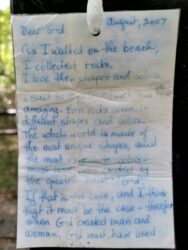 August, 2007
Dear God
As I walked on the beach,
I collected rocks.
I love their shapes and colors.
amazing. rocks come in
different shapes and colors.
The whole world is made of
the most unique shapes, and
the most colors
must have been created by
the greatest God.
If that is the case, and I think
that it must be the case - therefore
when God created man and
woman, God must have used